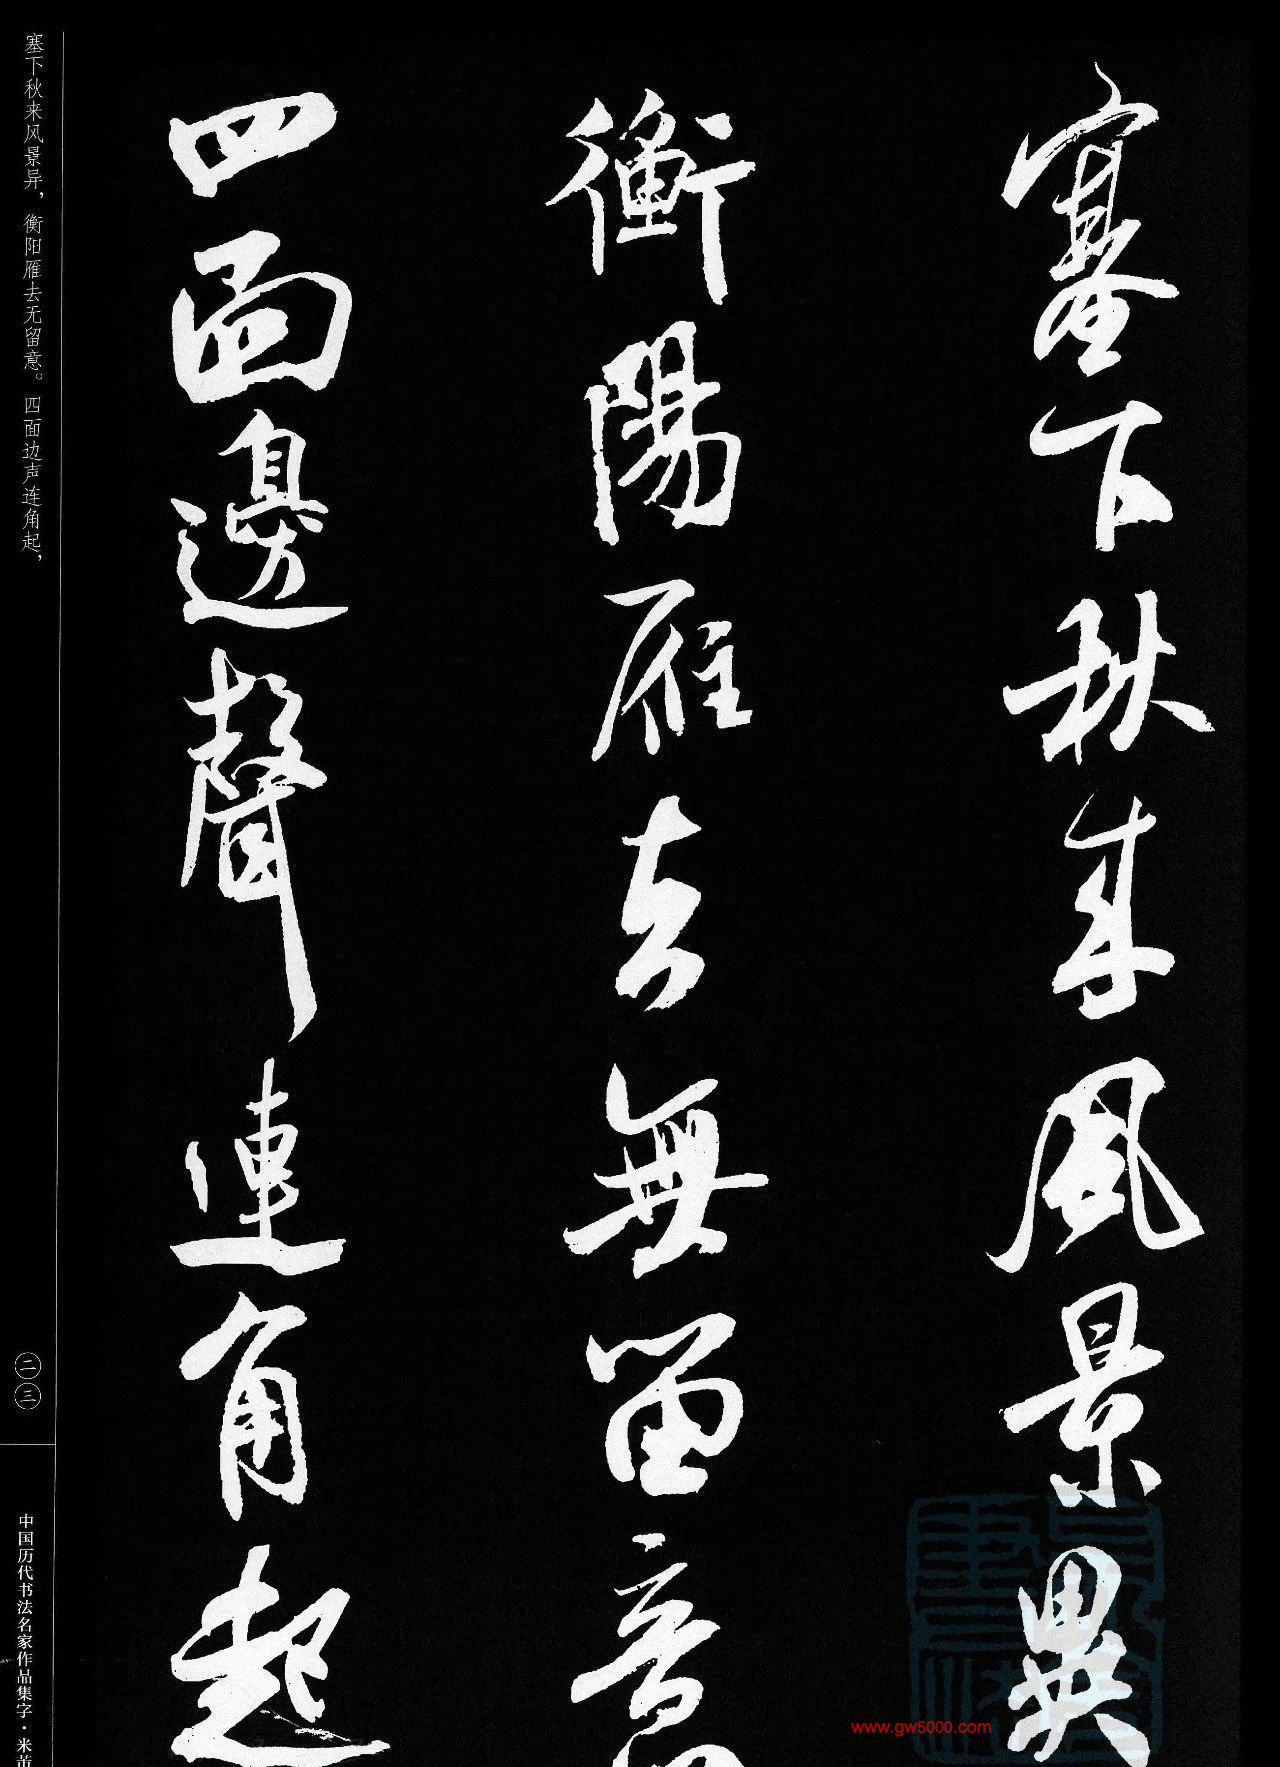 塞下秋来風景異
衡陽雁去無留意
四面邊聲連角起
塞下秋来风景异，衡阳雁去无留意。四面边声连角起，
二三
中国历代书法名家作品集字·米芾
www.gw5000.com